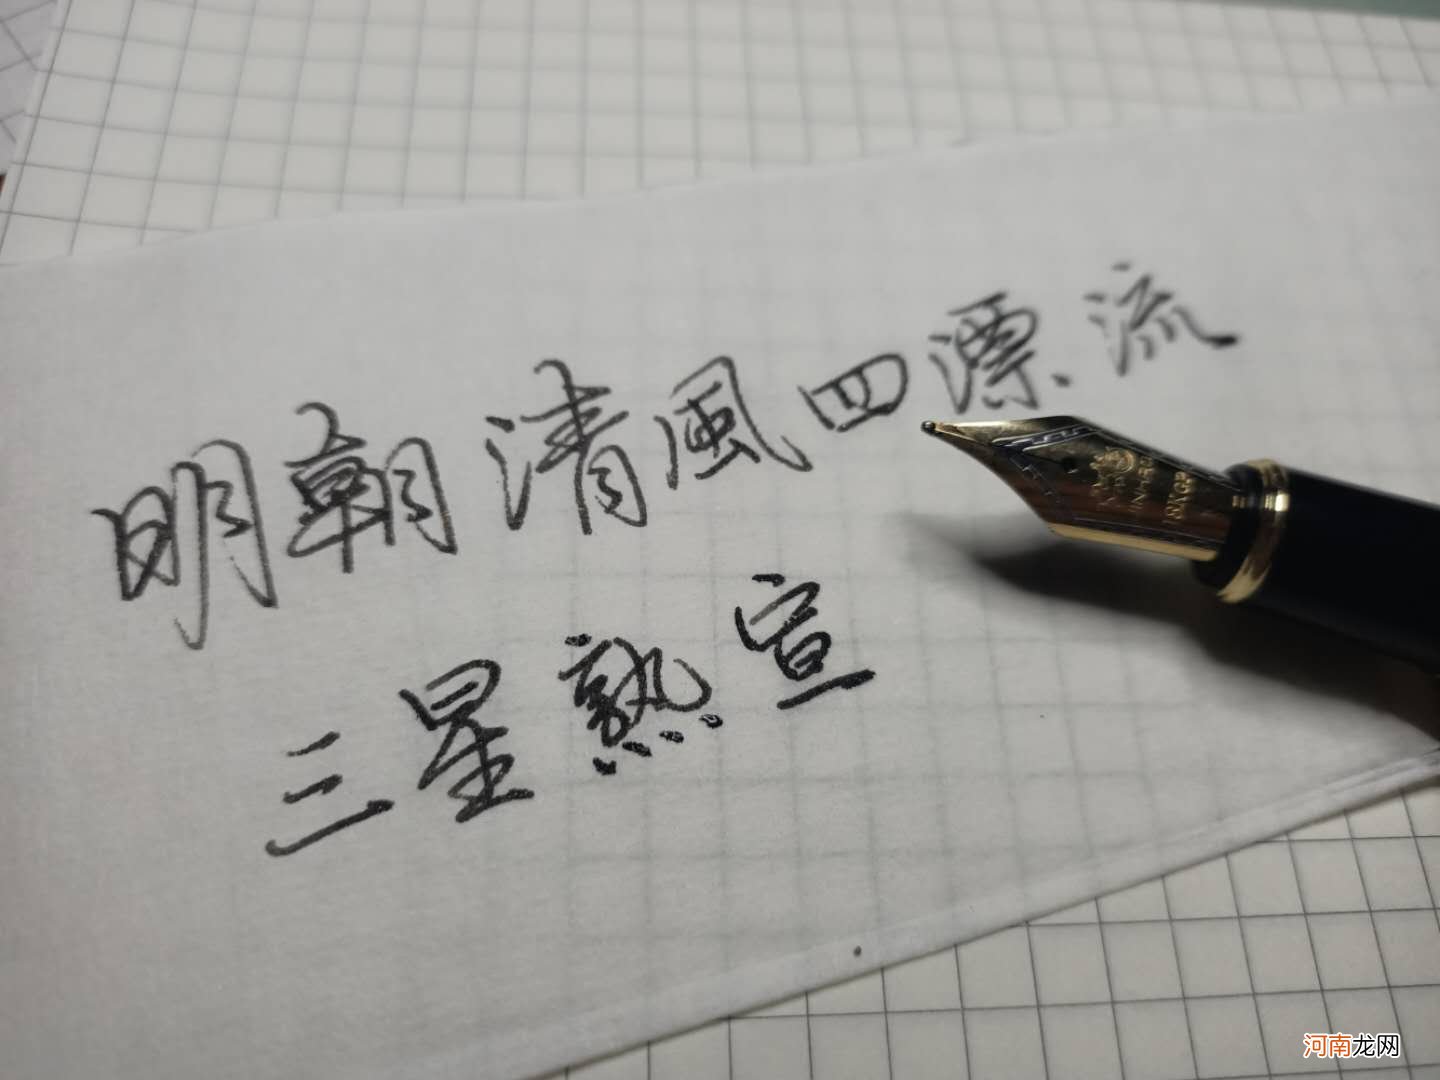 明朝清風四漂流
三星熟宣
18K
河南龙网